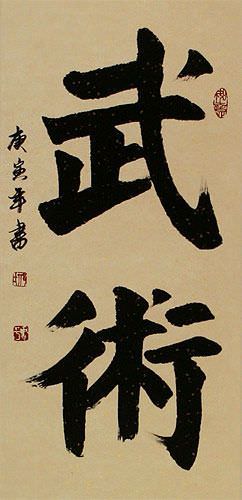 武術
庚寅年書